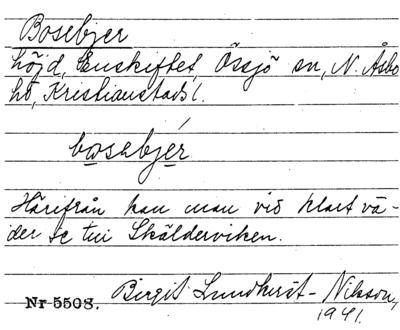 Bosebjer
höjd, Enskiftet, Össjö sn, N. Åsbo
hd, Kristianstads l.
bosebjér
Härifrån kan man vid klart vä-
der se till Skälderviken.
Nr 5508. Birgit Lundkvist-Nilsson,
1941.